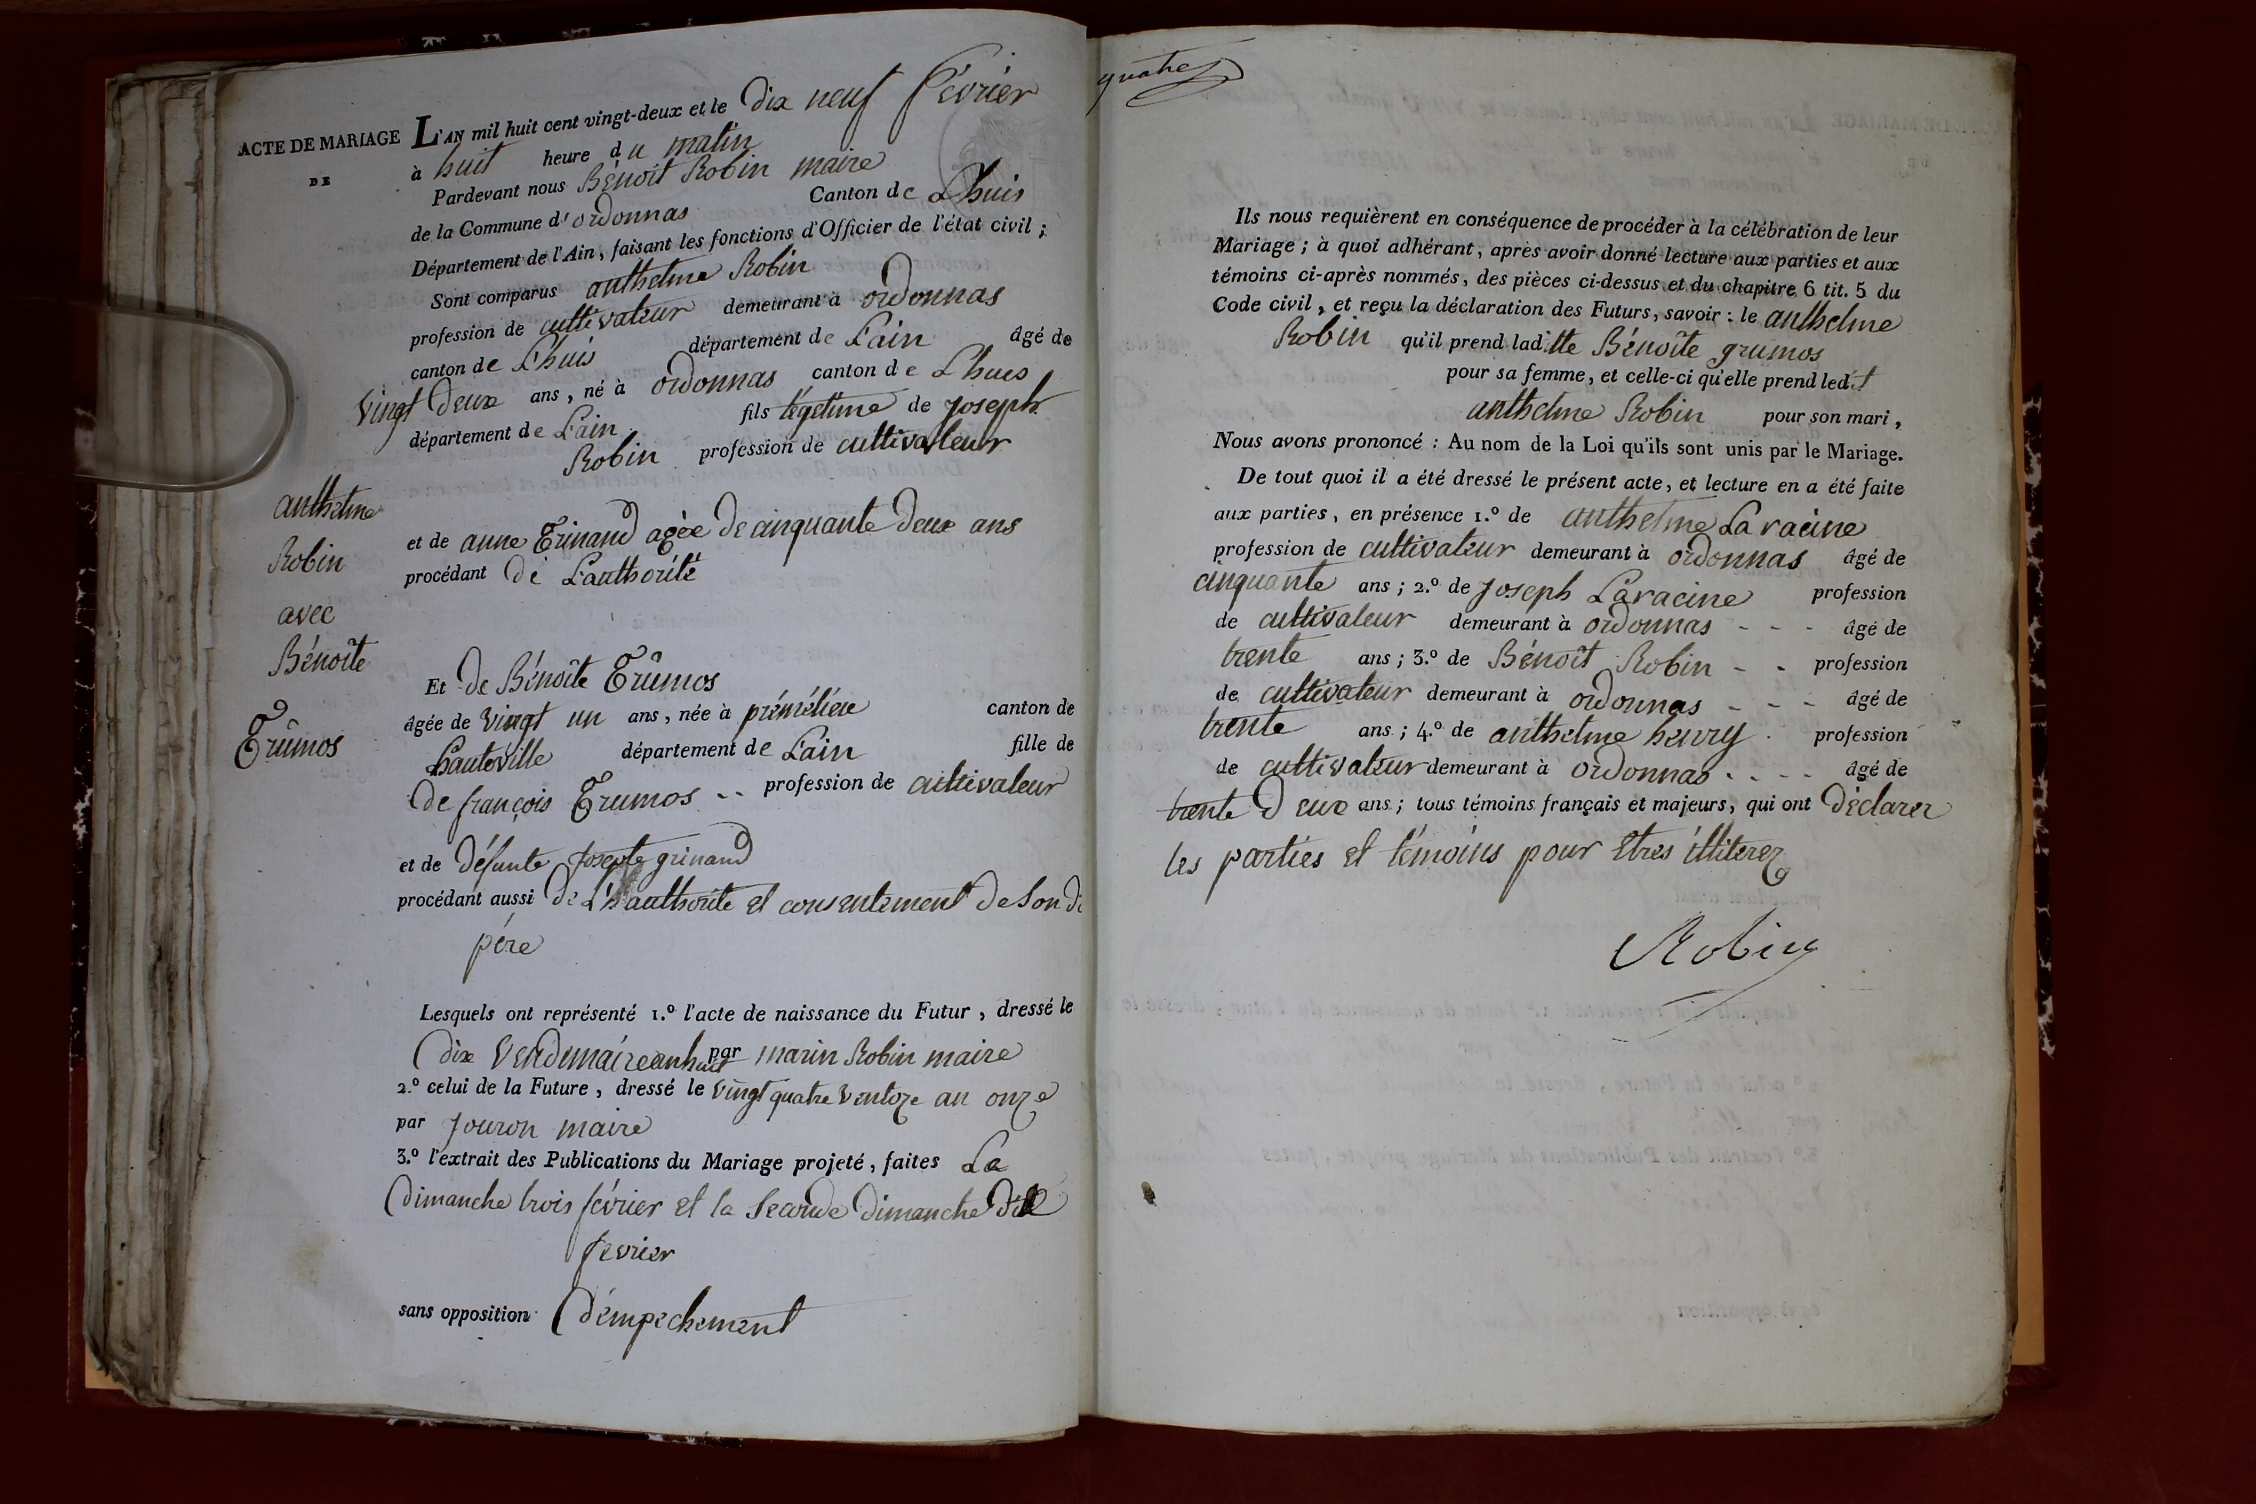 ACTE DE MARIAGE
DE
anthelme
Robin
avec
Bénoite
Grumos
L'AN mil huit cent vingt-deux et le dix neuf février
à huit heure du matin
Pardevant nous Bénoit Robin maire
de la Commune d'ordonnas Canton de Lhuis
Département de l'Ain, faisant les fonctions d'Officier de l'état civil ;
Sont comparus anthelme Robin
profession de cultivateur demeurant à ordonnas
canton de Lhuis département de L'ain âgé de
vingt deux ans, né à ordonnas canton de Lhuis
département de L'ain fils légetime de joseph
Robin profession de cultivateur
et de anne Grinand agée de cinquante deux ans
procédant de L'authorité
Et de Bénoîte Grûmos
âgée de vingt un ans, née à préméliere canton de
hauteville département de L'ain fille de
de françois Grumos -- profession de cultivateur
et de défunte josepte grinand
procédant aussi de L'hauthorité et consentement de Son di
pére
Lesquels ont représenté 1.º l'acte de naissance du Futur, dressé le
dix vendemaire an huit par marin Robin maire
2.º celui de la Future, dressé le vingt quatre ventoze an onze
par jouron maire
3.º l'extrait des Publications du Mariage projeté, faites La
dimanche trois février et la Seconde dimanche dix
fevrier
sans opposition d'empechement
quatre
Ils nous requièrent en conséquence de procéder à la célébration de leur
Mariage ; à quoi adhérant, après avoir donné lecture aux parties et aux
témoins ci-après nommés, des pièces ci-dessus et du chapitre 6 tit. 5 du
Code civil, et reçu la déclaration des Futurs, savoir : le anthelme
Robin qu'il prend laditte Bénoîte grumos
pour sa femme, et celle-ci qu'elle prend ledit
anthelme Robin pour son mari,
Nous avons prononcé : Au nom de la Loi qu'ils sont unis par le Mariage.
De tout quoi il a été dressé le présent acte, et lecture en a été faite
aux parties, en présence 1.º de anthelme Laracine
profession de cultivateur demeurant à ordonnas âgé de
cinquante ans ; 2.º de joseph Laracine profession
de cultivateur demeurant à ordonnas - - - âgé de
trente ans ; 3.º de Bénoît Robin - - profession
de cultivateur demeurant à ordonnas - - - âgé de
trente ans ; 4.º de anthelme henry profession
de cultivateur demeurant à ordonnas - - - - âgé de
trente deux ans ; tous témoins français et majeurs, qui ont déclarer
les parties et témoins pour êtres illiterez
Robin